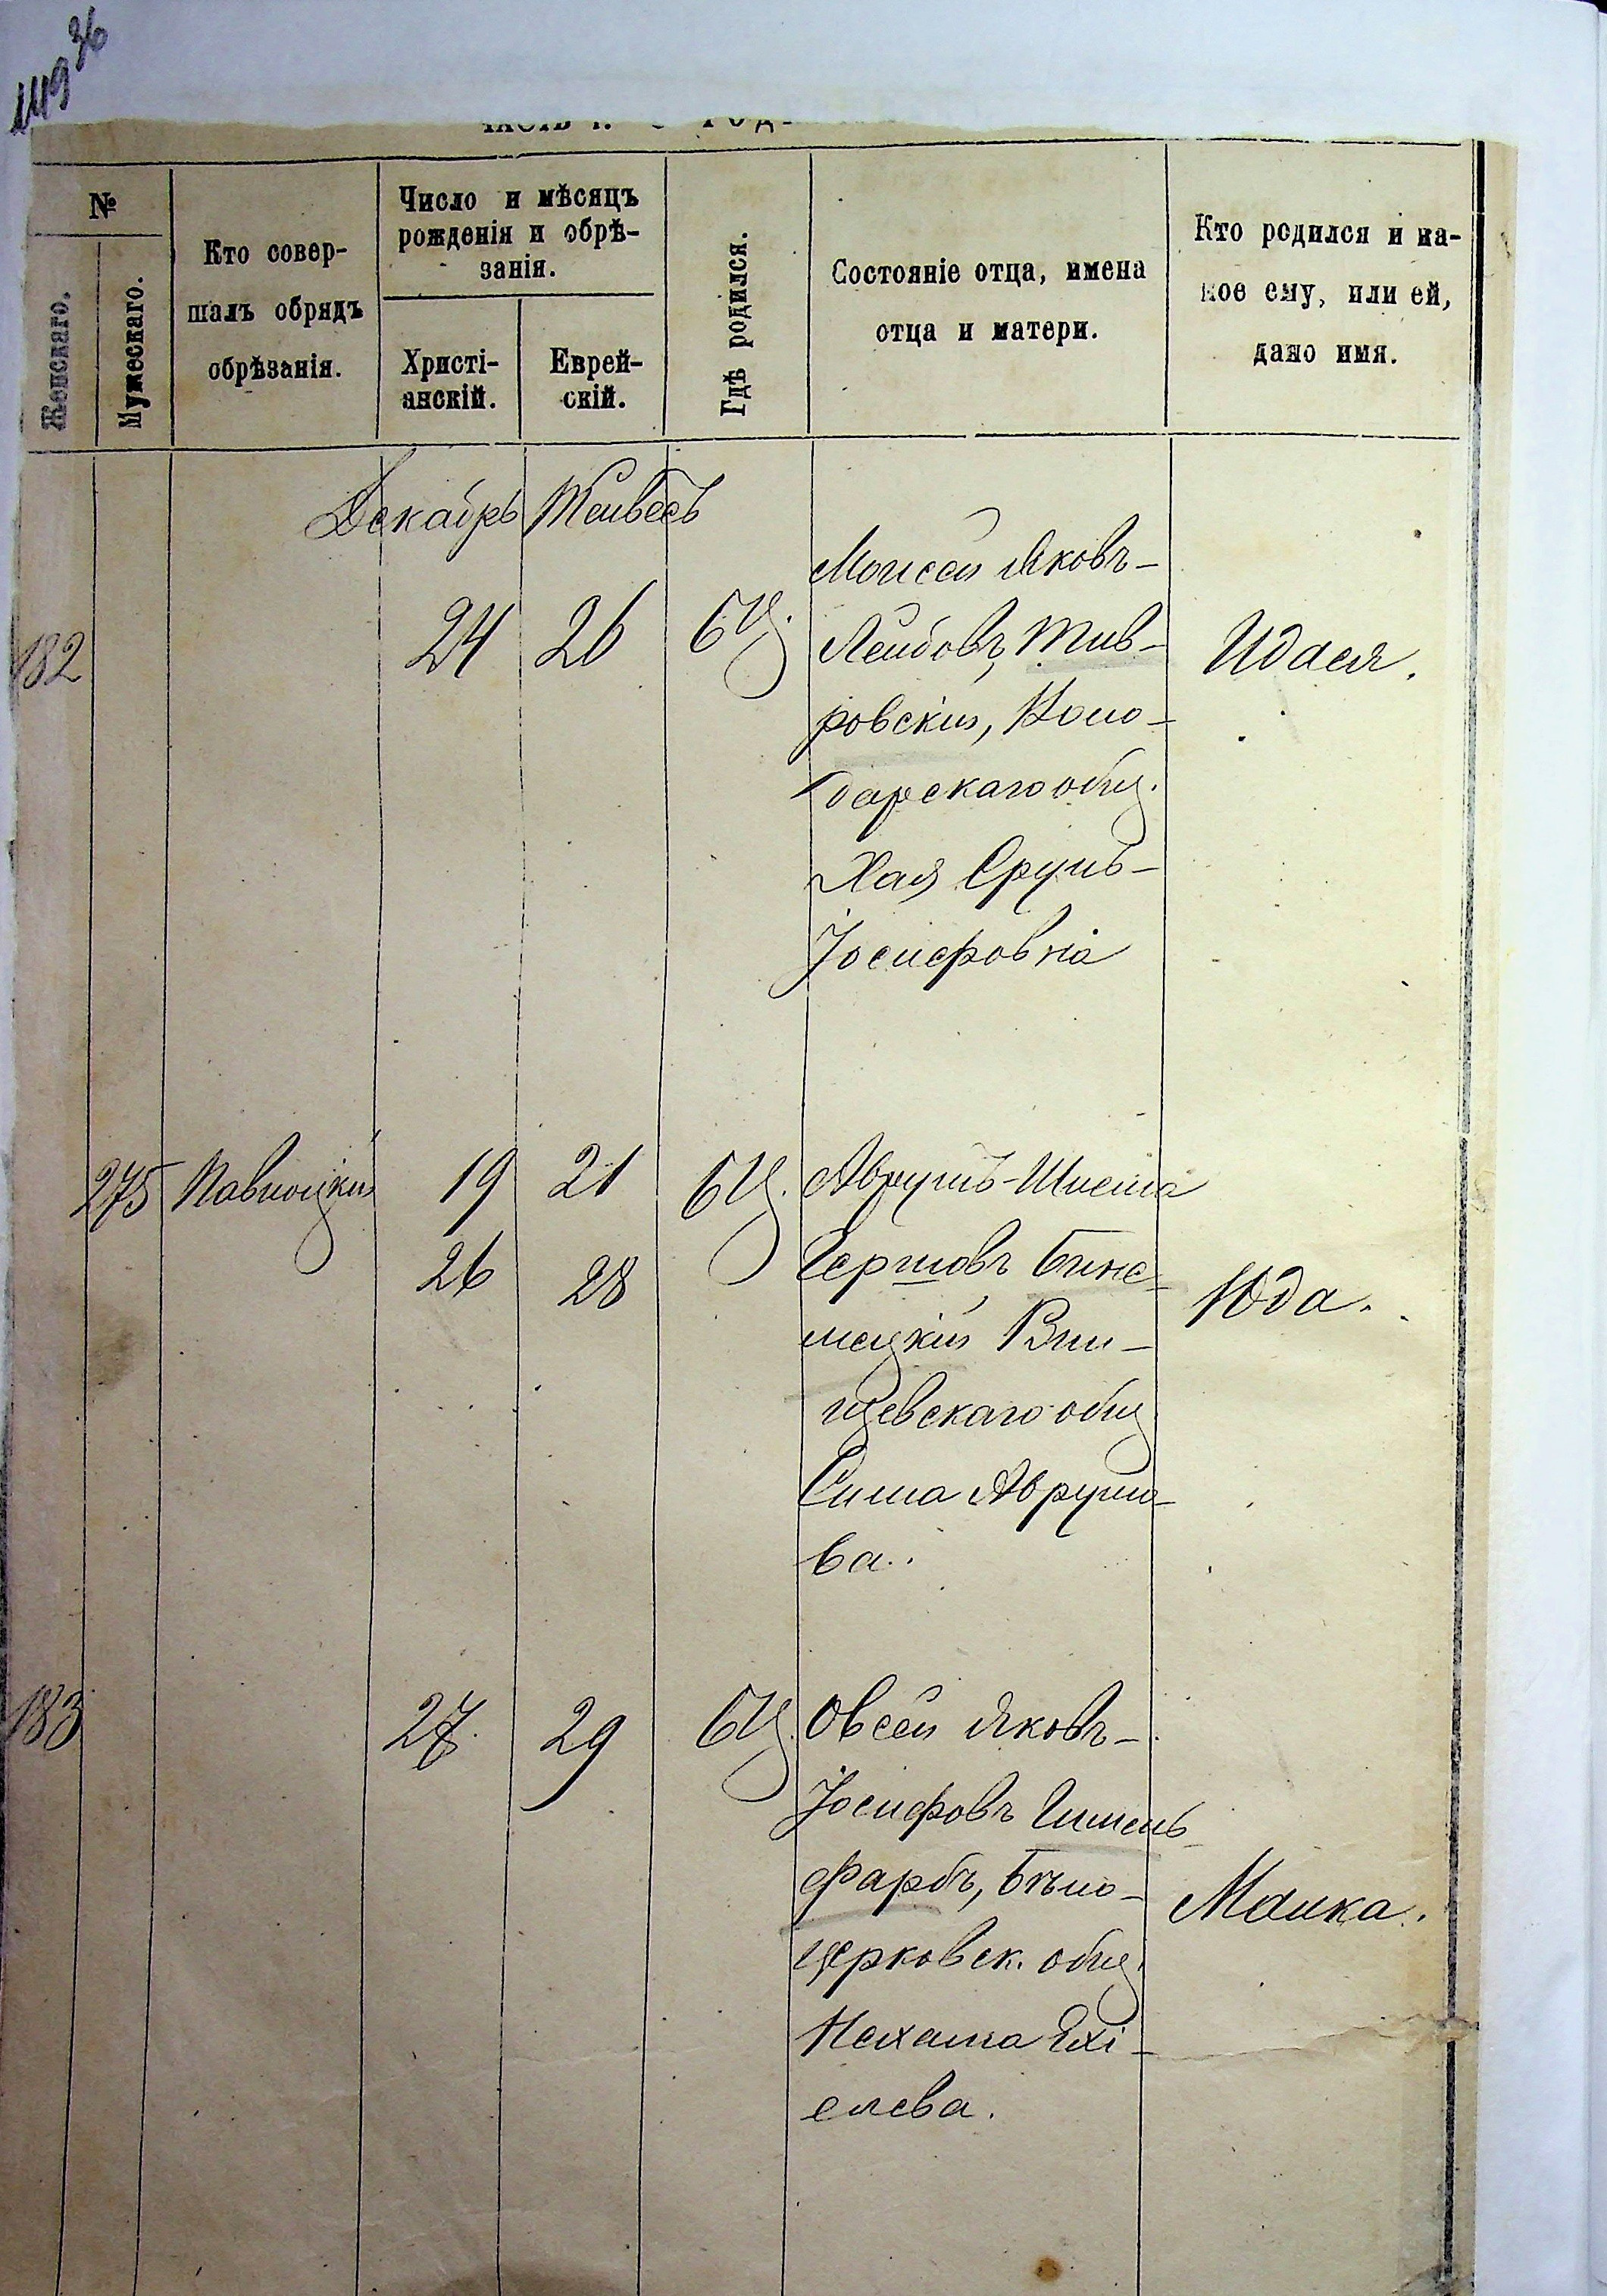 36
№
Женскаго.
Мужескаго.
Кто совер-
шалъ обрядъ
обрѣзанія.
Число и мѣсяцъ
рожденія и обрѣ-
занія.
Христі-
анскій.
Еврей-
скій.
Гдѣ родился.
Состояніе отца, имена
отца и матери.
Кто родился и ка-
кое ему, или ей,
дано имя.
Декабрь Тейвесъ
182 24 26 БЦ.
Моисей Яковъ-
Лейбовъ Тив-
ровскій,
дарскаго общ.
Хая Сруль-
Іосифовна
Идася.
275 Паволоцкій 19 21 БЦ.
26 28
Аврумъ-Шлема
Гершовъ Бине-
мецкій Вчи-
щевскаго общ
Сима Аврумо-
ва.
Юда.
183 27 29 БЦ.
Овсей Яковъ-
Іосифовъ Гимель-
фарбъ, Бѣло-
церковск. общ.
Нехама Ехі-
елева.
Малка.